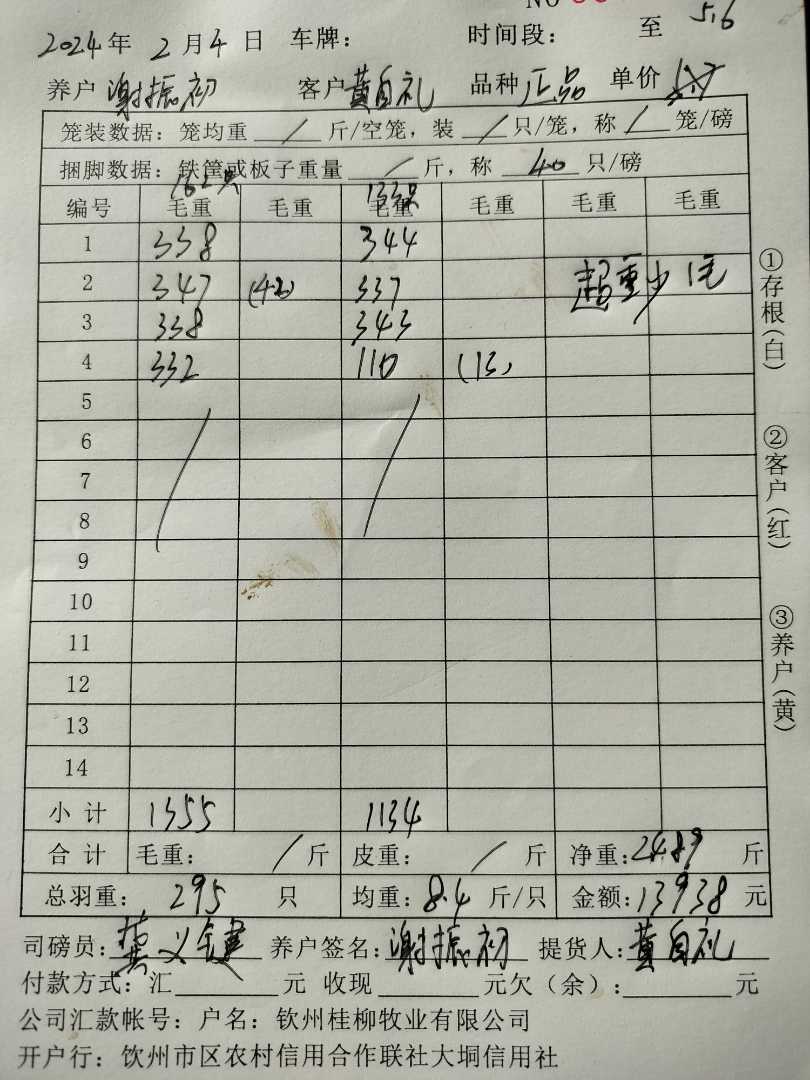 NO
5.6
2024年 2月4日 车牌： 时间段： 至
养户 谢振初 客户 黄自礼 品种 正品 单价
笼装数据：笼均重 / 斤/空笼，装 / 只/笼，称 / 笼/磅
捆脚数据：铁筐或板子重量 / 斤，称 40 只/磅
162只 133只
编号 毛重 毛重 毛重 毛重 毛重 毛重
1 338 344
2 347 (42) 337 超重少1毛
3 338 343
4 332 110 (13)
5
6
7
8
9
10
11
12
13
14
小计 1355 1134
合计 毛重： / 斤 皮重： / 斤 净重：2489 斤
总羽重： 295 只 均重：8.4 斤/只 金额：13938 元
司磅员：龚义健 养户签名：谢振初 提货人：黄自礼
付款方式：汇 元 收现 元欠（余）： 元
公司汇款帐号：户名：钦州桂柳牧业有限公司
开户行：饮州市区农村信用合作联社大垌信用社
①存根（白）
②客户（红）
③养户（黄）